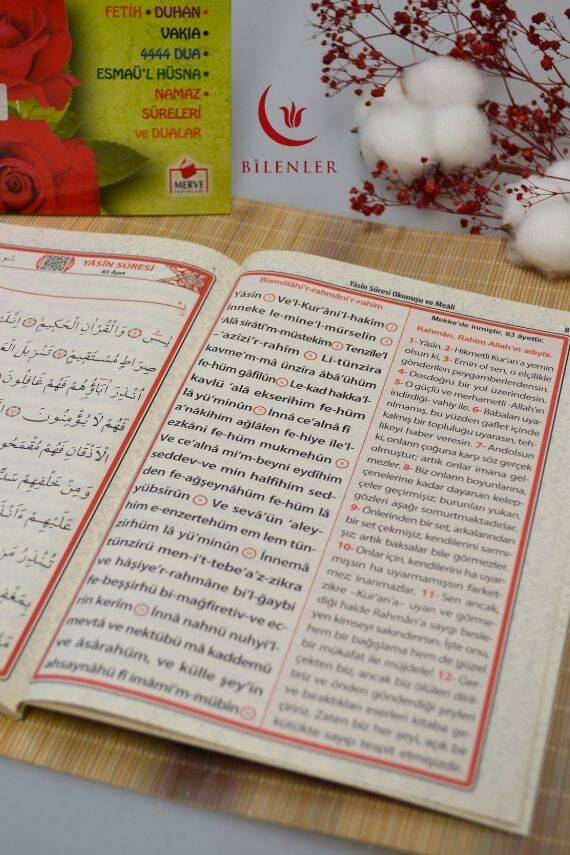 FETİH • DUHAN •
VAKIA •
4444 DUA •
ESMAÜ'L HÜSNA •
NAMAZ
SÛRELERİ
ve DUALAR
MERVE
YAYINLARI
BİLENLER
YÂSİN SÛRESİ
83 Âyet
يٰسٓ ① وَالْقُرْاٰنِ الْحَكٖيمِ ②
صِرَاطٍ مُسْتَقٖيمٍ ④ تَنْزٖيلَ
اُنْذِرَ اٰبَٓاؤُهُمْ فَهُمْ غَافِلُونَ
فَهُمْ لَا يُؤْمِنُونَ
الْاَذْقَانِ فَهُمْ مُقْمَحُونَ
وَمِنْ خَلْفِهِمْ
عَلَيْهِمْ
تُنْذِرُ
بِمَغْفِرَةٍ
Yâsîn Sûresi Okunuşu ve Meâli
Bismillâhi'r-rahmâni'r-rahîm
Yâsîn 1 Ve'l-Kur'âni'l-hakîm 2
inneke le-mine'l-mürselîn 3
'Alâ sirâti'm-müstekîm 4 Tenzîle'l
-'azîzi'r-rahîm 5 Li-tünzira
kavme'm-mâ ünzira âbâ'ühüm
fe-hüm gâfilûn 6 Le-kad hakka'l-
kavlü 'alâ ekserihim fe-hüm
lâ yü'minûn 7 İnnâ ce'alnâ fî
a'nâkihim ağlâlen fe-hiye ile'l-
ezkâni fe-hüm mukmehûn 8
Ve ce'alnâ mi'm-beyni eydîhim
seddev-ve min halfihim sed-
den fe-ağşeynâhüm fe-hüm lâ
yübsirûn 9 Ve sevâ'ün 'aley-
him e-enzertehüm em lem tün-
zirhüm lâ yü'minûn 10 İnnemâ
tünzirü men-i't-tebe'a'z-zikra
ve hâşiye'r-rahmâne bi'l-ğaybi
fe-beşşirhü bi-mağfiretiv-ve ec-
rin kerîm 11 İnnâ nahnü nuhyi'l-
mevtâ ve nektübü mâ kaddemû
ve âsârahüm, ve külle şey'in
ahsaynâhü fî imâmi'm-mübîn 12
Mekke'de inmiştir. 83 âyettir.
Rahmân, Rahîm Allah'ın adıyla.
1- Yâsîn. 2- Hikmetli Kur'an'a yemin
olsun ki, 3- Emin ol sen, o elçilikle
gönderilen peygamberlerdensin.
4- Dosdoğru bir yol üzerindesin.
5- O güçlü ve merhametli -Allah'ın
indirdiği- vahiy ile. 6- Babaları uya-
rılmamış, bu yüzden gaflet içinde
kalmış bir topluluğu uyarasın, teh-
likeyi haber veresin. 7- Andolsun
ki, onların çoğuna karşı söz gerçek
olmuştur; artık onlar imana gel-
mezler. 8- Biz onların boyunlarına,
çenelerine kadar dayanan kelep-
çeler geçirmişiz; burunları yukarı,
gözleri aşağı somurtmaktadırlar.
9- Önlerinden bir set, arkalarından
bir set çekmişiz, kendilerini sarmı-
şız; artık baksalar bile görmezler.
10- Onlar için, kendilerini ha uyar-
mışsın ha uyarmamışsın farket-
mez: inanmazlar. 11- Sen ancak,
zikre –Kur'an'a– uyan ve görme-
diği halde Rahmân'a saygı besle-
yen kimseyi sakındırırsın. İşte onu,
hem bir bağışlama hem de güzel
bir mükafat ile müjdele! 12- Ger-
çekten biz, ancak biz ölüleri diril-
tiriz ve önden gönderdiği şeyleri
ve bıraktıkları eserleri kitaba ge-
çiririz. Zaten biz her şeyi, açık bir
kütükte sayıp tespit etmişizdir.